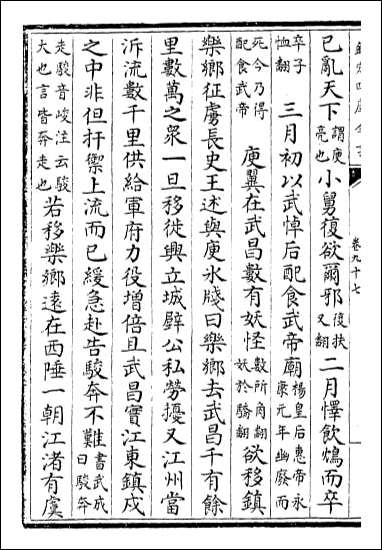 卷九十七
已亂天下謂庾亮也小舅復欲爾邪復扶又翻二月懌飲鴆而卒
卒子恤翻三月初以武悼后配食武帝廟楊皇后惠帝永康元年幽廢而
死今乃得配食武帝庾翼在武昌數有妖怪數所角翻妖於驕翻欲移鎮
樂鄉征虜長史王述與庾氷牋曰樂鄉去武昌千有餘
里數萬之衆一旦移徙興立城壁公私勞擾又江州當
泝流數千里供給軍府力役增倍且武昌實江東鎮戍
之中非但扞禦上流而已緩急赴告駿奔不難書武成曰駿奔
走駿音峻注云駿大也言皆奔走也若移樂鄉遠在西陲一朝江渚有虞